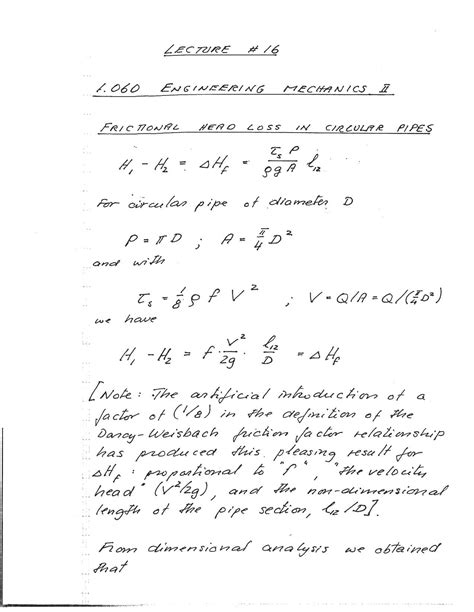 LECTURE #16
1.060 ENGINEERING MECHANICS II
FRICTIONAL HEAD LOSS IN CIRCULAR PIPES
H₁ - H₂ = ΔH_f = (τ_s P)/(ρg A) l₁₂
For circular pipe of diameter D
P = πD ; A = π/4 D²
and with
τ_s = 1/8 ρ f V² ; V = Q/A = Q/(π/4 D²)
we have
H₁ - H₂ = f · V²/2g · l₁₂/D = ΔH_f
[Note: The artificial introduction of a
factor of (1/8) in the definition of the
Darcy-Weisbach friction factor relationship
has produced this pleasing result for
ΔH_f : proportional to "f", "the velocity
head" (V²/2g), and the non-dimensional
length of the pipe section, l₁₂/D].
From dimensional analysis we obtained
that